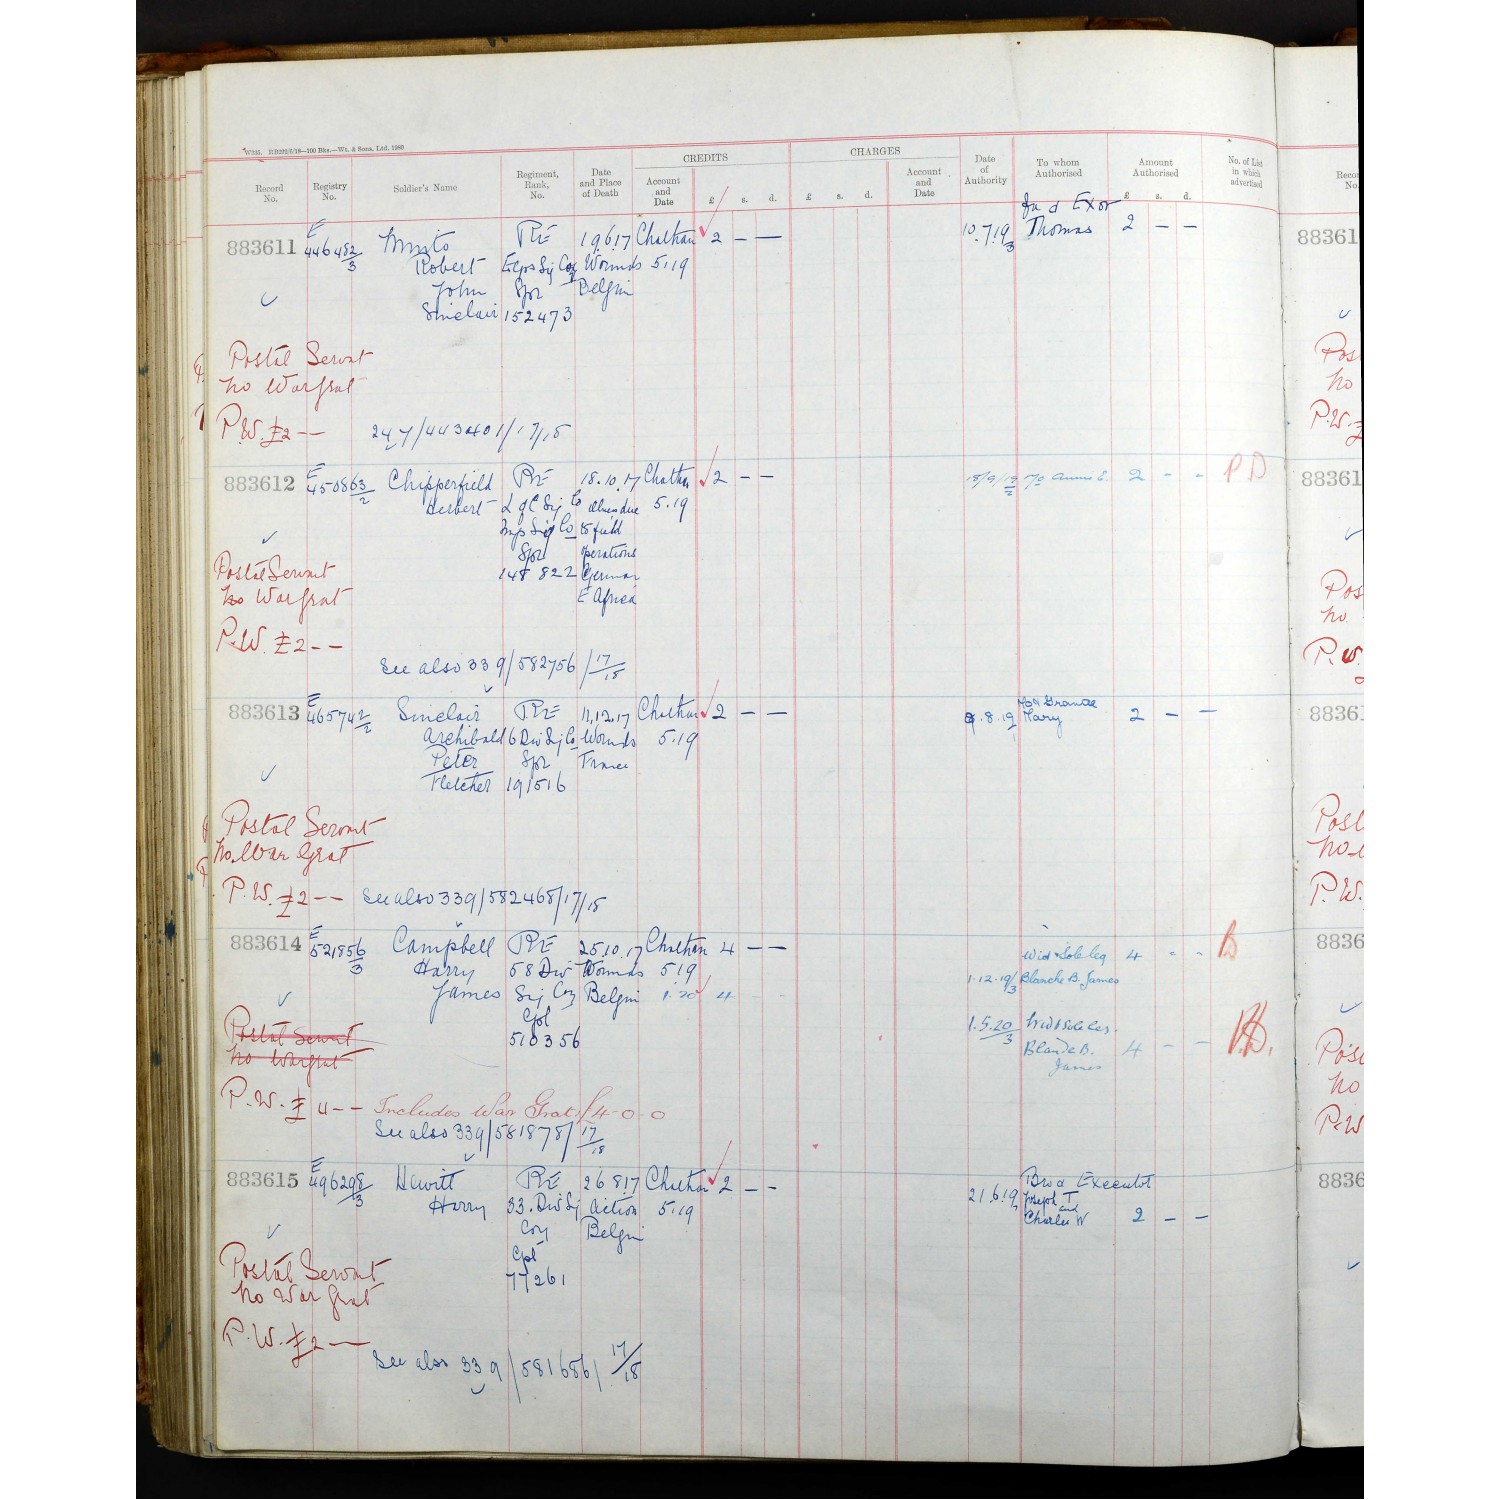 CREDITS CHARGES
Record No. Registry No. Soldier's Name Regiment, Rank, No. Date and Place of Death Account and Date £ s. d. £ s. d. Account and Date Date of Authority To whom Authorised Amount Authorised £ s. d. No. of List in which advertised
Exor
883611 E RE 19.6.17 Chatham 2 – – 10.7.19 Thomas 2 – –
446482/3 Robert Wounds 5.19
John Spr Belgium
Sinclair 152473
Postal Servt
no War Grat
P.W. £2 – –
883612 E 450863/2 Chipperfield RE 18.10.17 Chatham 2 – – 18/9/19 Annie E. 2 - - P D
Herbert L of C Sig Co 5.19
Sig Co to field
Spr operations
148822 German
E Africa
Postal Servant
no War Grat
P.W. £2 – –
See also 339/582756/17/18
883613 E 465742/2 Sinclair RE 11.12.17 Chatham 2 – – 8.19 Mary 2 – –
Archibald 6 Div Sig Co Wounds 5.19
Peter Spr France
Fletcher 191516
Postal Servant
no War Grat
P.W. £2 – – See also 339/582468/17/18
883614 E 521856/3 Campbell RE 25.10.17 Chatham 4 – – Wid & Sole leg 4 - -
Harry 58 Div Wounds 5.19 1.12.19/3 Blanche B. James
James Sig Coy Belgium 1.20 4 - -
Cpl 1.5.20/3 Wid & Sole leg.
510356 Blanche B. 4 – –
James
Postal Servt
no War Grat
P.W. £4 – – Includes War Grat £4-0-0
See also 339/581878/17/18
883615 E 496298/3 Hewitt RE 26.8.17 Chatham 2 – – 21.6.19 Bro & Executor
Harry 33. Div Sig action 5.19 Joseph T and
Coy Belgium Charles W 2 – –
Cpl
77261
Postal Servant
no War Grat
P.W. £2 –
See also 339/581686/17/18